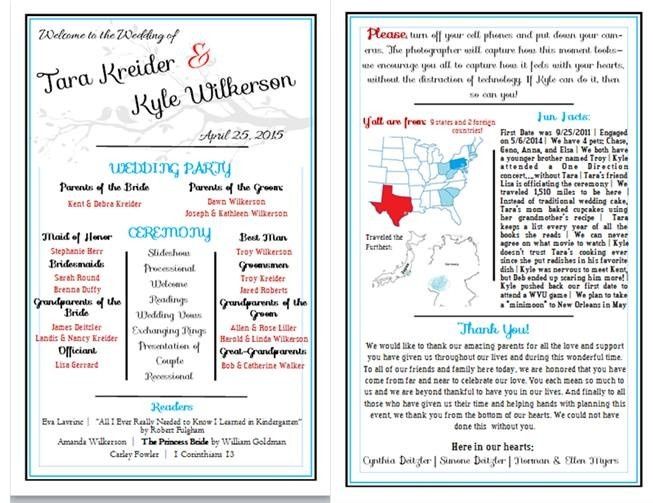 Welcome to the Wedding of
Tara Kreider & 
Kyle Wilkerson
April 25, 2015
WEDDING PARTY
Parents of the Bride
Kent & Debra Kreider
Parents of the Groom
Dawn Wilkerson
Joseph & Kathleen Wilkerson
Maid of Honor
Stephanie Herr
Bridesmaids
Sarah Round
Brenna Duffy
Grandparents of the
Bride
James Deitzler
Landis & Nancy Kreider
Officiant
Lisa Gerrard
CEREMONY
Slideshow
Processional
Welcome
Readings
Wedding Vows
Exchanging Rings
Presentation of
Couple
Recessional
Best Man
Troy Wilkerson
Groomsmen
Troy Kreider
Jared Roberts
Grandparents of the
Groom
Allen & Rose Liller
Harold & Linda Wilkerson
Great-Grandparents
Bob & Catherine Walker
Readers
Eva Lavrinc | "All I Ever Really Needed to Know I Learned in Kindergarten"
by Robert Fulgham
Amanda Wilkerson | The Princess Bride by William Goldman
Carley Fowler | 1 Corinthians 13
Please, turn off your cell phones and put down your cam-
eras. The photographer will capture how this moment looks—
we encourage you all to capture how it feels with your hearts,
without the distraction of technology. If Kyle can do it, then
so can you!
Y'all are from: 9 states and 2 foreign
countries!
Traveled the
Furthest:
Fun Facts:
First Date was 9/25/2011 | Engaged
on 5/6/2014 | We have 4 pets: Chase,
Geno, Anna, and Elsa | We both have
a younger brother named Troy | Kyle
attended a One Direction
concert....without Tara | Tara's friend
Lisa is officiating the ceremony | We
traveled 1,510 miles to be here |
Instead of traditional wedding cake,
Tara's mom baked cupcakes using
her grandmother's recipe | Tara
keeps a list every year of all the
books she reads | We can never
agree on what movie to watch | Kyle
doesn't trust Tara's cooking ever
since she put radishes in his favorite
dish | Kyle was nervous to meet Kent,
but Deb ended up scaring him more! |
Kyle pushed back our first date to
attend a WVU game | We plan to take
a "minimoon" to New Orleans in May
Thank You!
We would like to thank our amazing parents for all the love and support
you have given us throughout our lives and during this wonderful time.
To all of our friends and family here today, we are honored that you have
come from far and near to celebrate our love. You each mean so much to
us and we are beyond thankful to have you in our lives. And finally to all
those who have given us their time and helping hands with planning this
event, we thank you from the bottom of our hearts. We could not have
done this without you.
Here in our hearts:
Cynthia Deitzler | Simone Deitzler | Norman & Ellen Myers